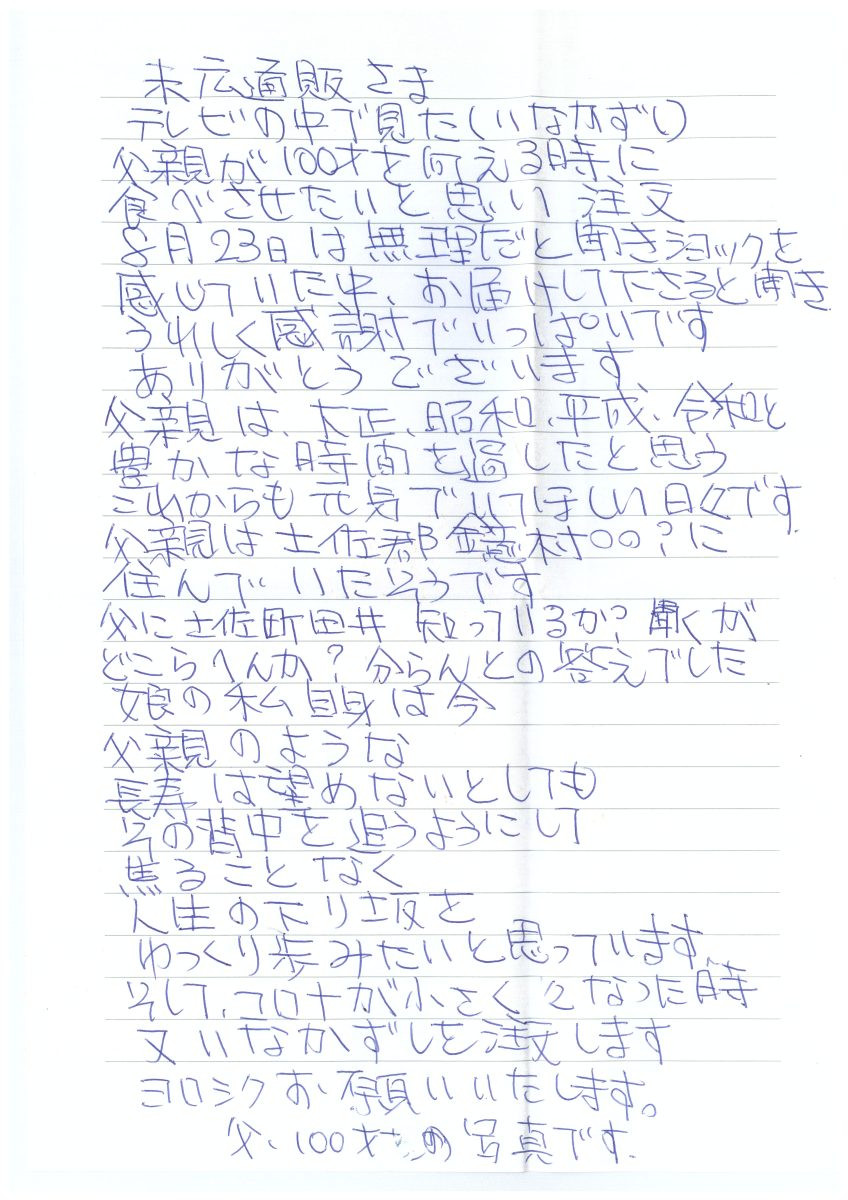 末広通販さま
テレビの中で見た(いなかずし)
父親が100才を向える時に
食べさせたいと思い 注文
8月23日は無理だと聞きショックを
感じていた中、お届けして下さると聞き
うれしく感謝でいっぱいです
ありがとうございます
父親は、大正、昭和、平成、令和と
豊かな時間を過したと思う
これからも元気でいてほしい日々です
父親は土佐郡鏡村〇の?に
住んでいたそうです
父に土佐町田井 知っているか?聞くが
どこらへんか?分らんとの答えでした
娘の私自身は今
父親のような
長寿は望めないとしても
その背中を追うようにして
焦ることなく
人生の下り坂を
ゆっくり歩みたいと思っています
そして、コロナが小さくなった時
又いなかずしを注文します
ヨロシクお願いいたします。
父、100才の写真です